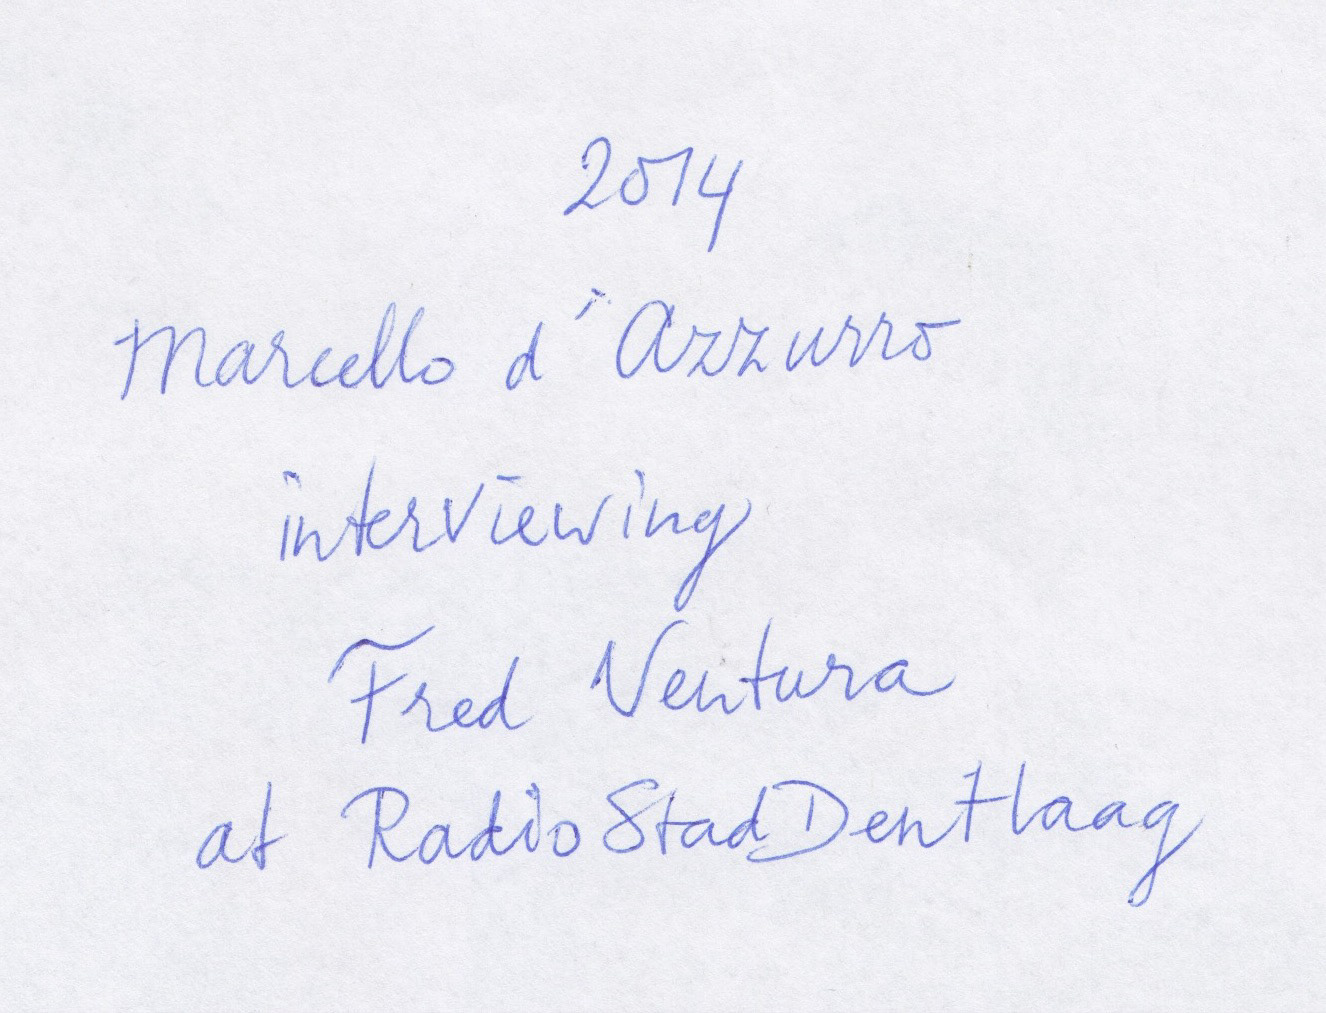 2014
Marcello d'Azzurro
interviewing
Fred Ventura
at RadioStadDenHaag